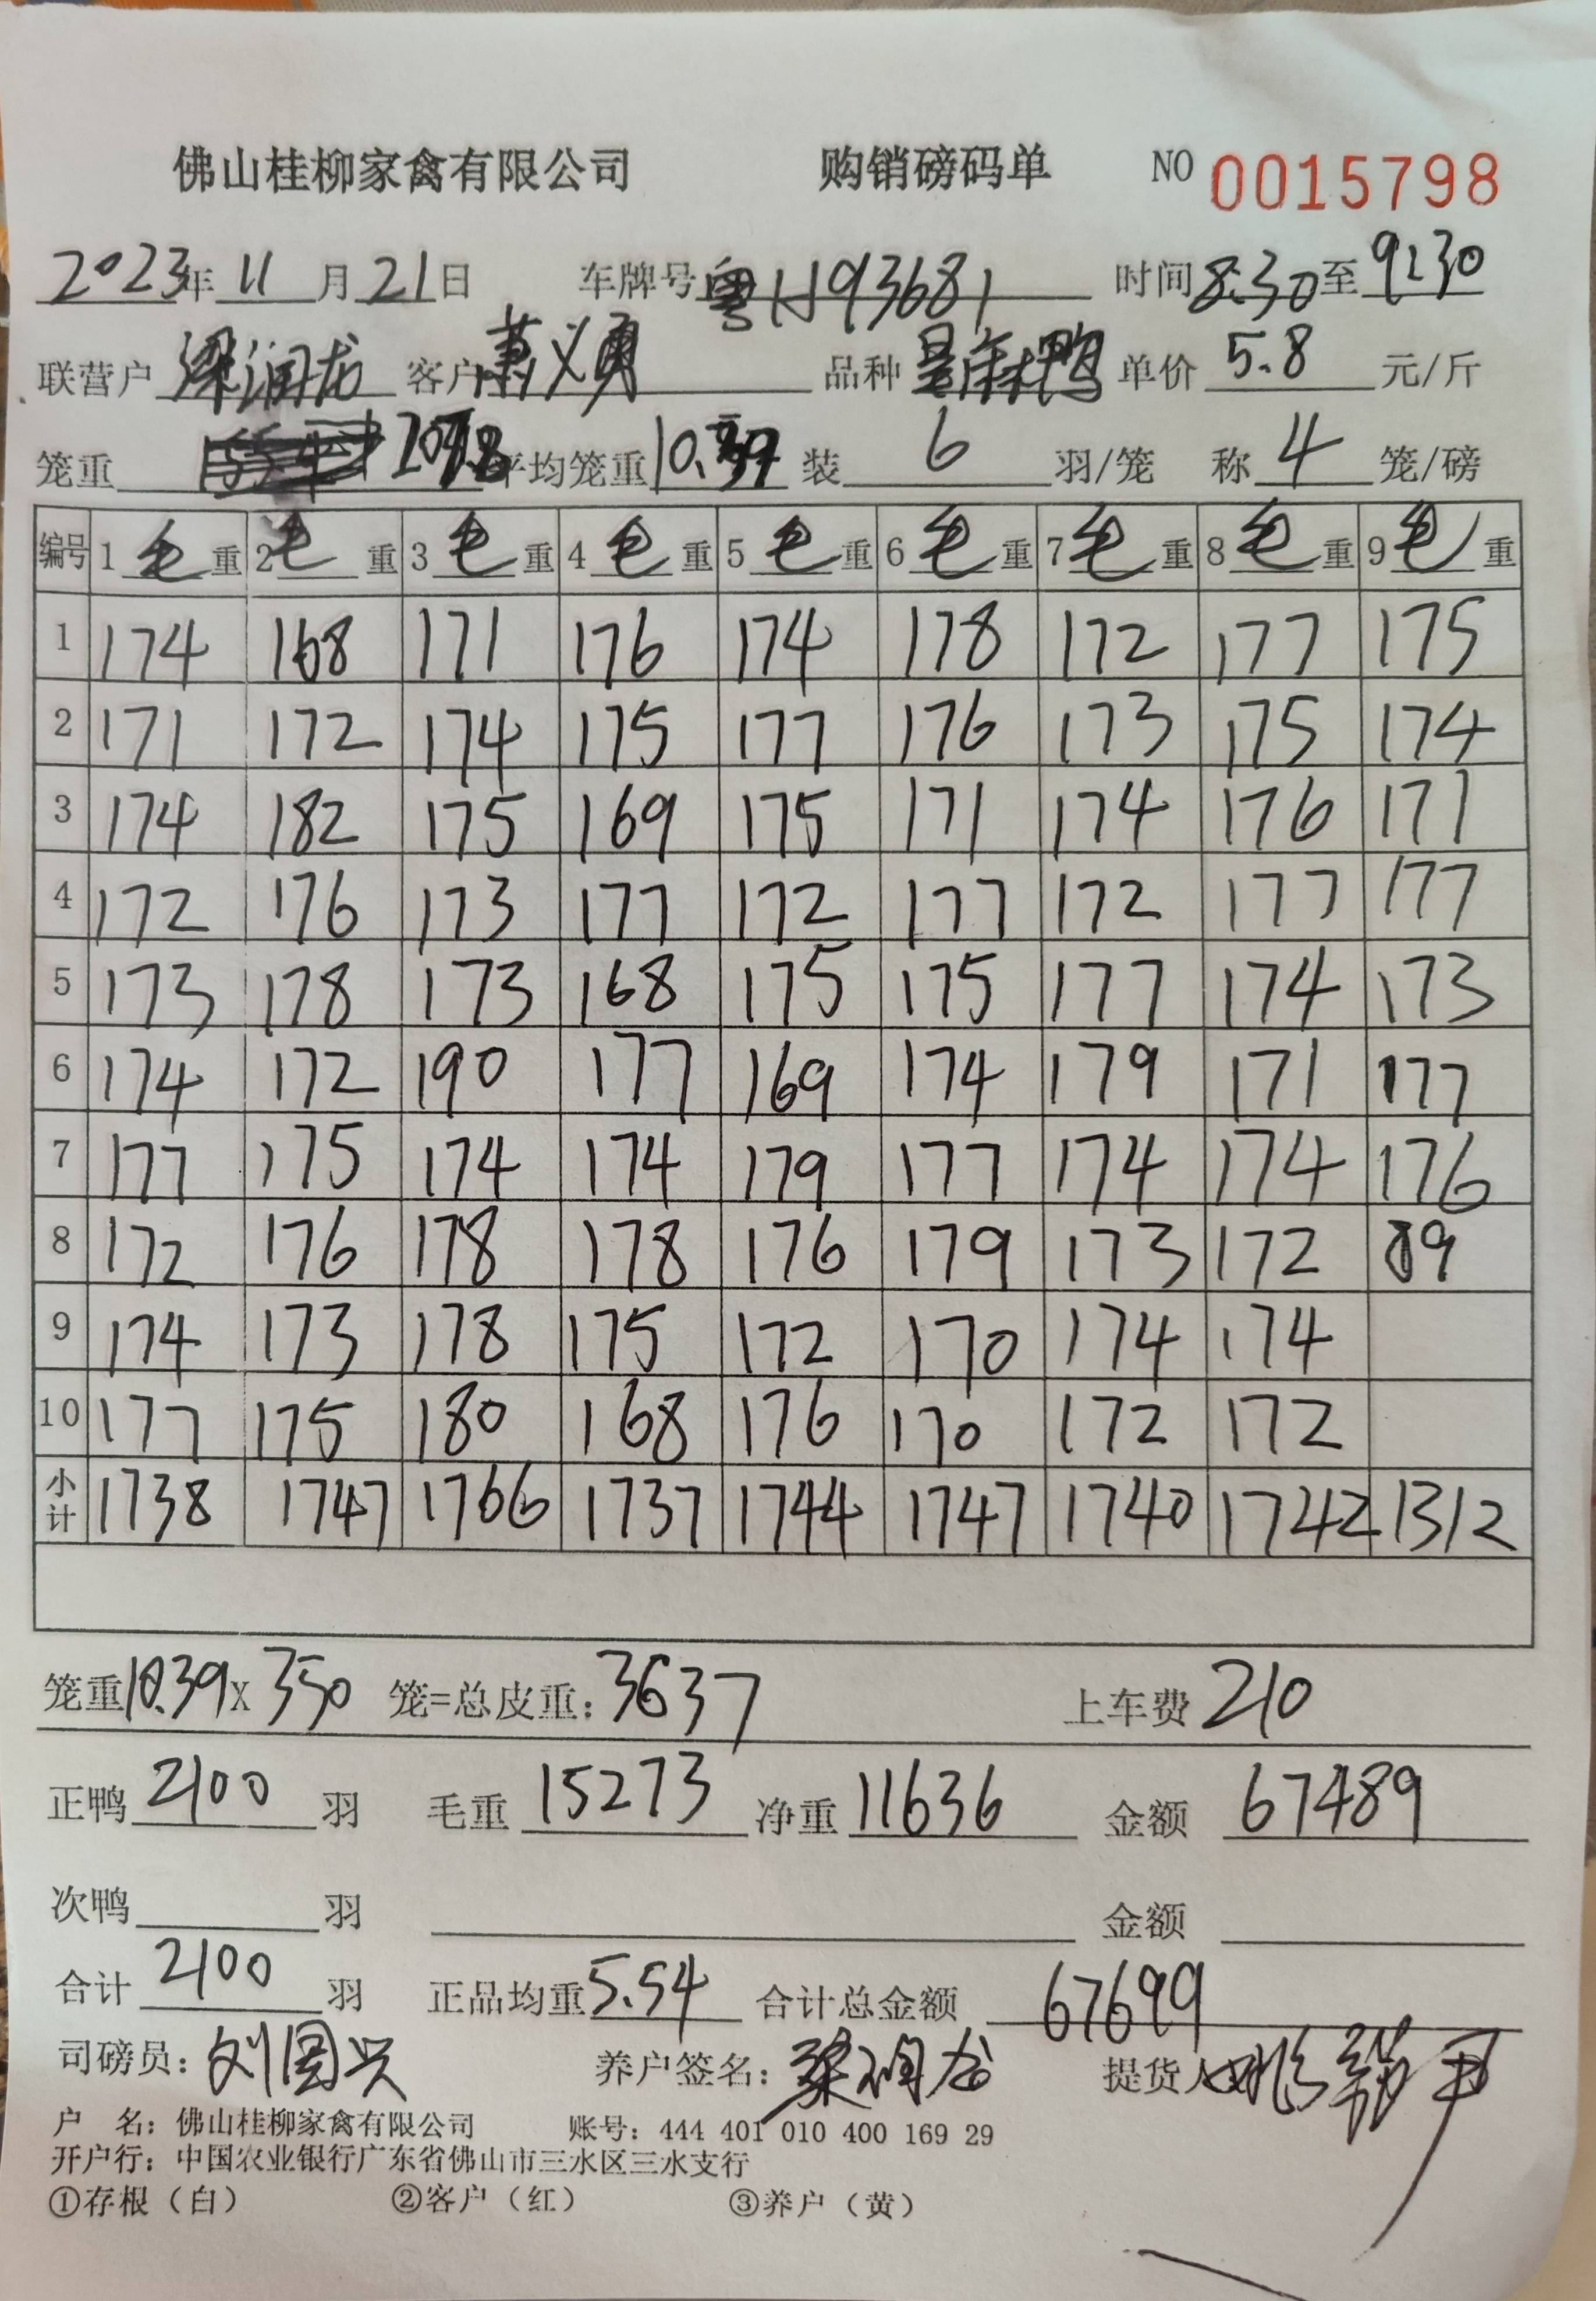 佛山桂柳家禽有限公司 购销磅码单 NO 0015798
2023年 11月 21日 车牌号 粤H93681 时间 8:30 至 9:30
联营户 梁润龙 客户 萧义勇 品种 鸭 单价 5.8 元/斤
笼重 平均笼重 10.39 装 6 羽/笼 称 4 笼/磅
编号 1 毛 重 2 毛 重 3 毛 重 4 毛 重 5 毛 重 6 毛 重 7 毛 重 8 毛 重 9 毛 重
1 174 168 171 176 174 178 172 177 175
2 171 172 174 175 177 176 173 175 174
3 174 182 175 169 175 171 174 176 171
4 172 176 173 177 172 177 172 177 177
5 173 178 173 168 175 175 177 174 173
6 174 172 190 177 169 174 179 171 177
7 177 175 174 174 179 177 174 174 176
8 172 176 178 178 176 179 173 172 89
9 174 173 178 175 172 170 174 174
10 177 175 180 168 176 170 172 172
小计 1738 1747 1766 1737 1744 1747 1740 1742 1312
笼重 10.39 X 350 笼=总皮重: 3637 上车费 210
正鸭 2100 羽 毛重 15273 净重 11636 金额 67489
次鸭 羽 金额
合计 2100 羽 正品均重 5.54 合计总金额 67699
司磅员: 刘国兴 养户签名: 梁润龙 提货人
户 名: 佛山桂柳家禽有限公司 账号: 444 401 010 400 169 29
开户行: 中国农业银行广东省佛山市三水区三水支行
①存根（白） ②客户（红） ③养户（黄）